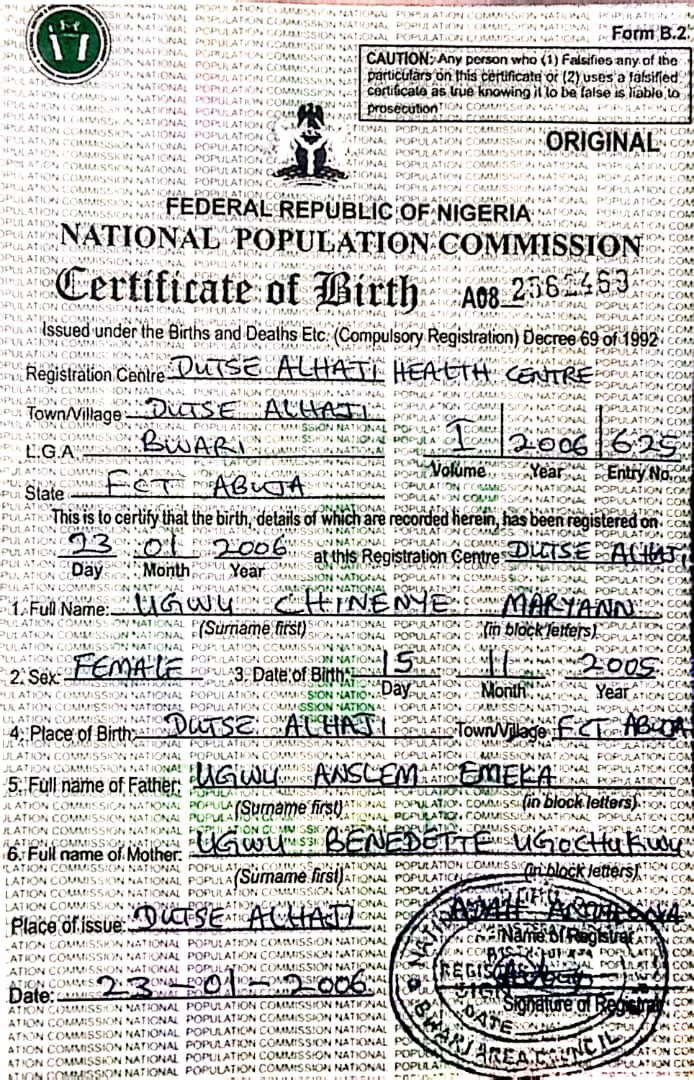 Form B.2
CAUTION: Any person who (1) Falsifies any of the
particulars on this certificate or (2) uses a falsified
certificate as true knowing it to be false is liable to
prosecution
ORIGINAL
FEDERAL REPUBLIC OF NIGERIA
NATIONAL POPULATION COMMISSION
Certificate of Birth A08
Issued under the Births and Deaths Etc. (Compulsory Registration) Decree 69 of 1992
Registration Centre DUTSE ALHAJI HEALTH CENTRE
Town/Village DUTSE ALHAJI
L.G.A. BWARI I 2006 625
Volume Year Entry No.
State FCT ABUJA
This is to certify that the birth, details of which are recorded herein, has been registered on
23 01 2006 at this Registration Centre DUTSE ALHAJI
Day Month Year
1. Full Name: UGWU CHINENYE MARYANN
(Surname first) (in block letters)
2. Sex: FEMALE 3. Date of Birth: 15 11 2005
Day Month Year
4. Place of Birth: DUTSE ALHAJI Town/Village FCT ABUJA
5. Full name of Father: UGWU ANSLEM EMEKA
(Surname first) (in block letters)
6. Full name of Mother: UGWU BENEDETTE UGOCHUKWU
(Surname first) (in block letters)
Place of Issue: DUTSE ALHAJI
Name of Registrar
Date: 23-01-2006
Signature of Registrar
DATE
BWARI AREA COUNCIL